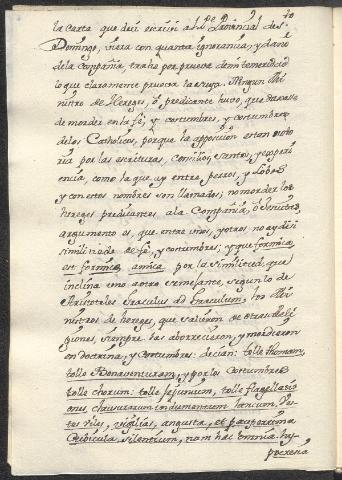 la Carta que dexi escrivi al Pe Provincial de Sto
Domingo, viera con quanta ignorancia, y daño
de la Compañia, trahe por prueva de mi temeridad
lo que claramente prueva la suya. Ningun Mi-
nistro de Hereges, ò predicante huvo, que dexasse
de morder en la fè, y costumbres, y costumbres
de los Catholicos, porque la opposicion es tan noto
ria por las escrituras, Concilios, Santos, y experi
encia, como la que ay entre perros, y Lobos
y con estos nombres son llamados; no morder los
hereges predicantes a la Compañia, ò Jesuitas,
argumento es, que entre unos, y otros no ay di-
similitud de fè, y costumbres; y que formica
est formicæ amica por la similitud, que
inclina uno a otro semejante, segun lo de
Aristoteles Graculus ad Graculum, los Mi-
nistros de hereges, que salieron de otras Reli-
giones, siempre las aborrecieron, y mordieron
en doctrina, y costumbres: decian: tolle Thomam,
tolle Bonaventuram, y por las costumbres
tolle chorum: tolle jejunium, tolle flagellatio
ones clausurarum indumentum laneum, Ves-
tes viles, vigilias, angusta, et pauperrima
Cubicula silentium, nam hæc omnia hy-
pocresia